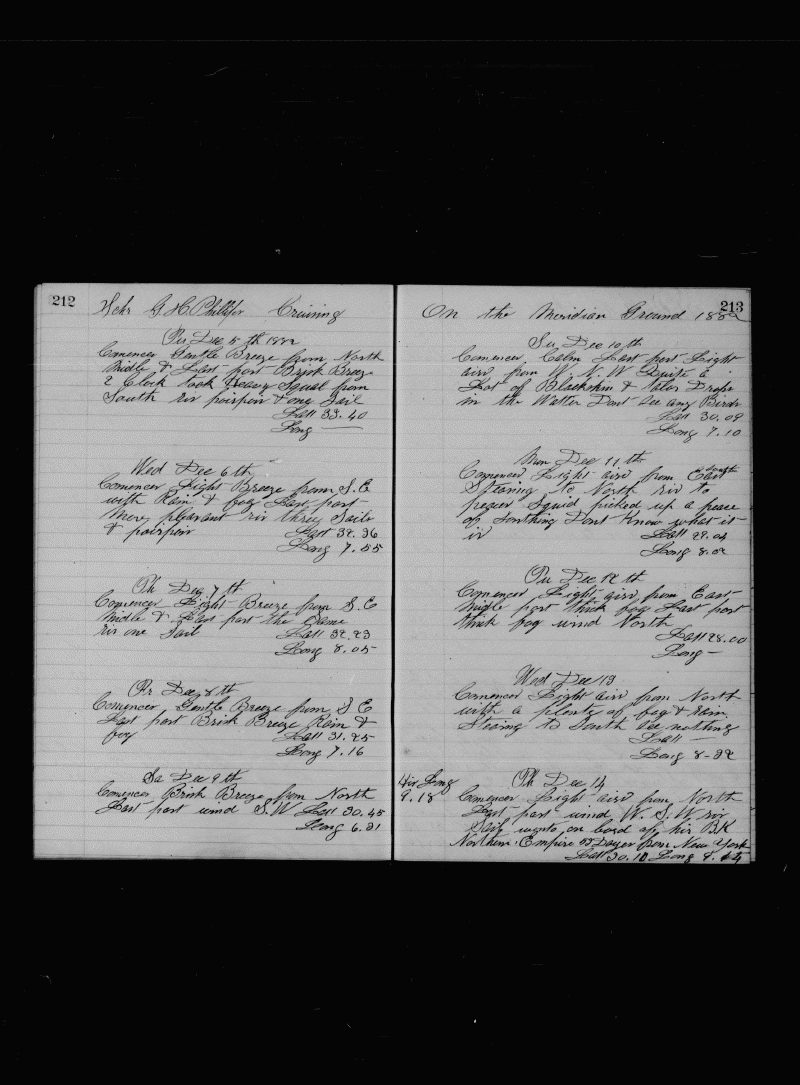 212
Schr G H Phillips Cruising
Tu Dec 5 th 1882
Comences Gentle Breeze from North
Midle & Last part Brisk Breeze
2 Clock took Heavy Squal from
South siv poirpess & one Sail
Latt 33.40
Long —
Wed Dec 6 th
Comences Light Breeze from S.E
with Rain & fog Last part
More pleasant siv three Sails
& poirpess Latt 32.36
Long 7.55
Th Dec 7 th
Comences Light Breeze from S.E
Midle & Last part the Same
siv one Sail Latt 32.23
Long 8.05
Fr Dec 8 th
Comences Gentle Breeze from S E
Last part Brisk Breeze Rain &
fog Latt 31.25
Long 7.16
Sa Dec 9 th
Comences Brisk Breeze from North
Last part wind S.W Latt 30.45
Long 6.31
213
On the Meridian Ground 1882
Su Dec 10 th
Comences Calm Last part Light
airs from W.N.W Quite a
Lot of Blackskin & Slops
in the Watter Dont See any Birds
Latt 30.09
Long 7.10
Mon Dec 11 th
South
Comences Light airs from East
Stearing to North siv to
peacer Squid picked up a peace
of Somthing Dont Know what it
is Latt 29.04
Long 8.02
Tu Dec 12 th
Comences Light airs from East
Midle part thick fog Last part
thick fog wind North
Latt 28.00
Long —
Wed Dec 13
Comences Light airs from North
with a plenty of fog & rain
Stearing to South See nothing
Latt —
Long 8-22
Th Dec 14
Long
9.18
Comences Light airs from North
Last part wind W.S.W siv
Sail wente on bord of hir BK
Northern Empire Dayes from New York
Latt 30.10 Long 9.